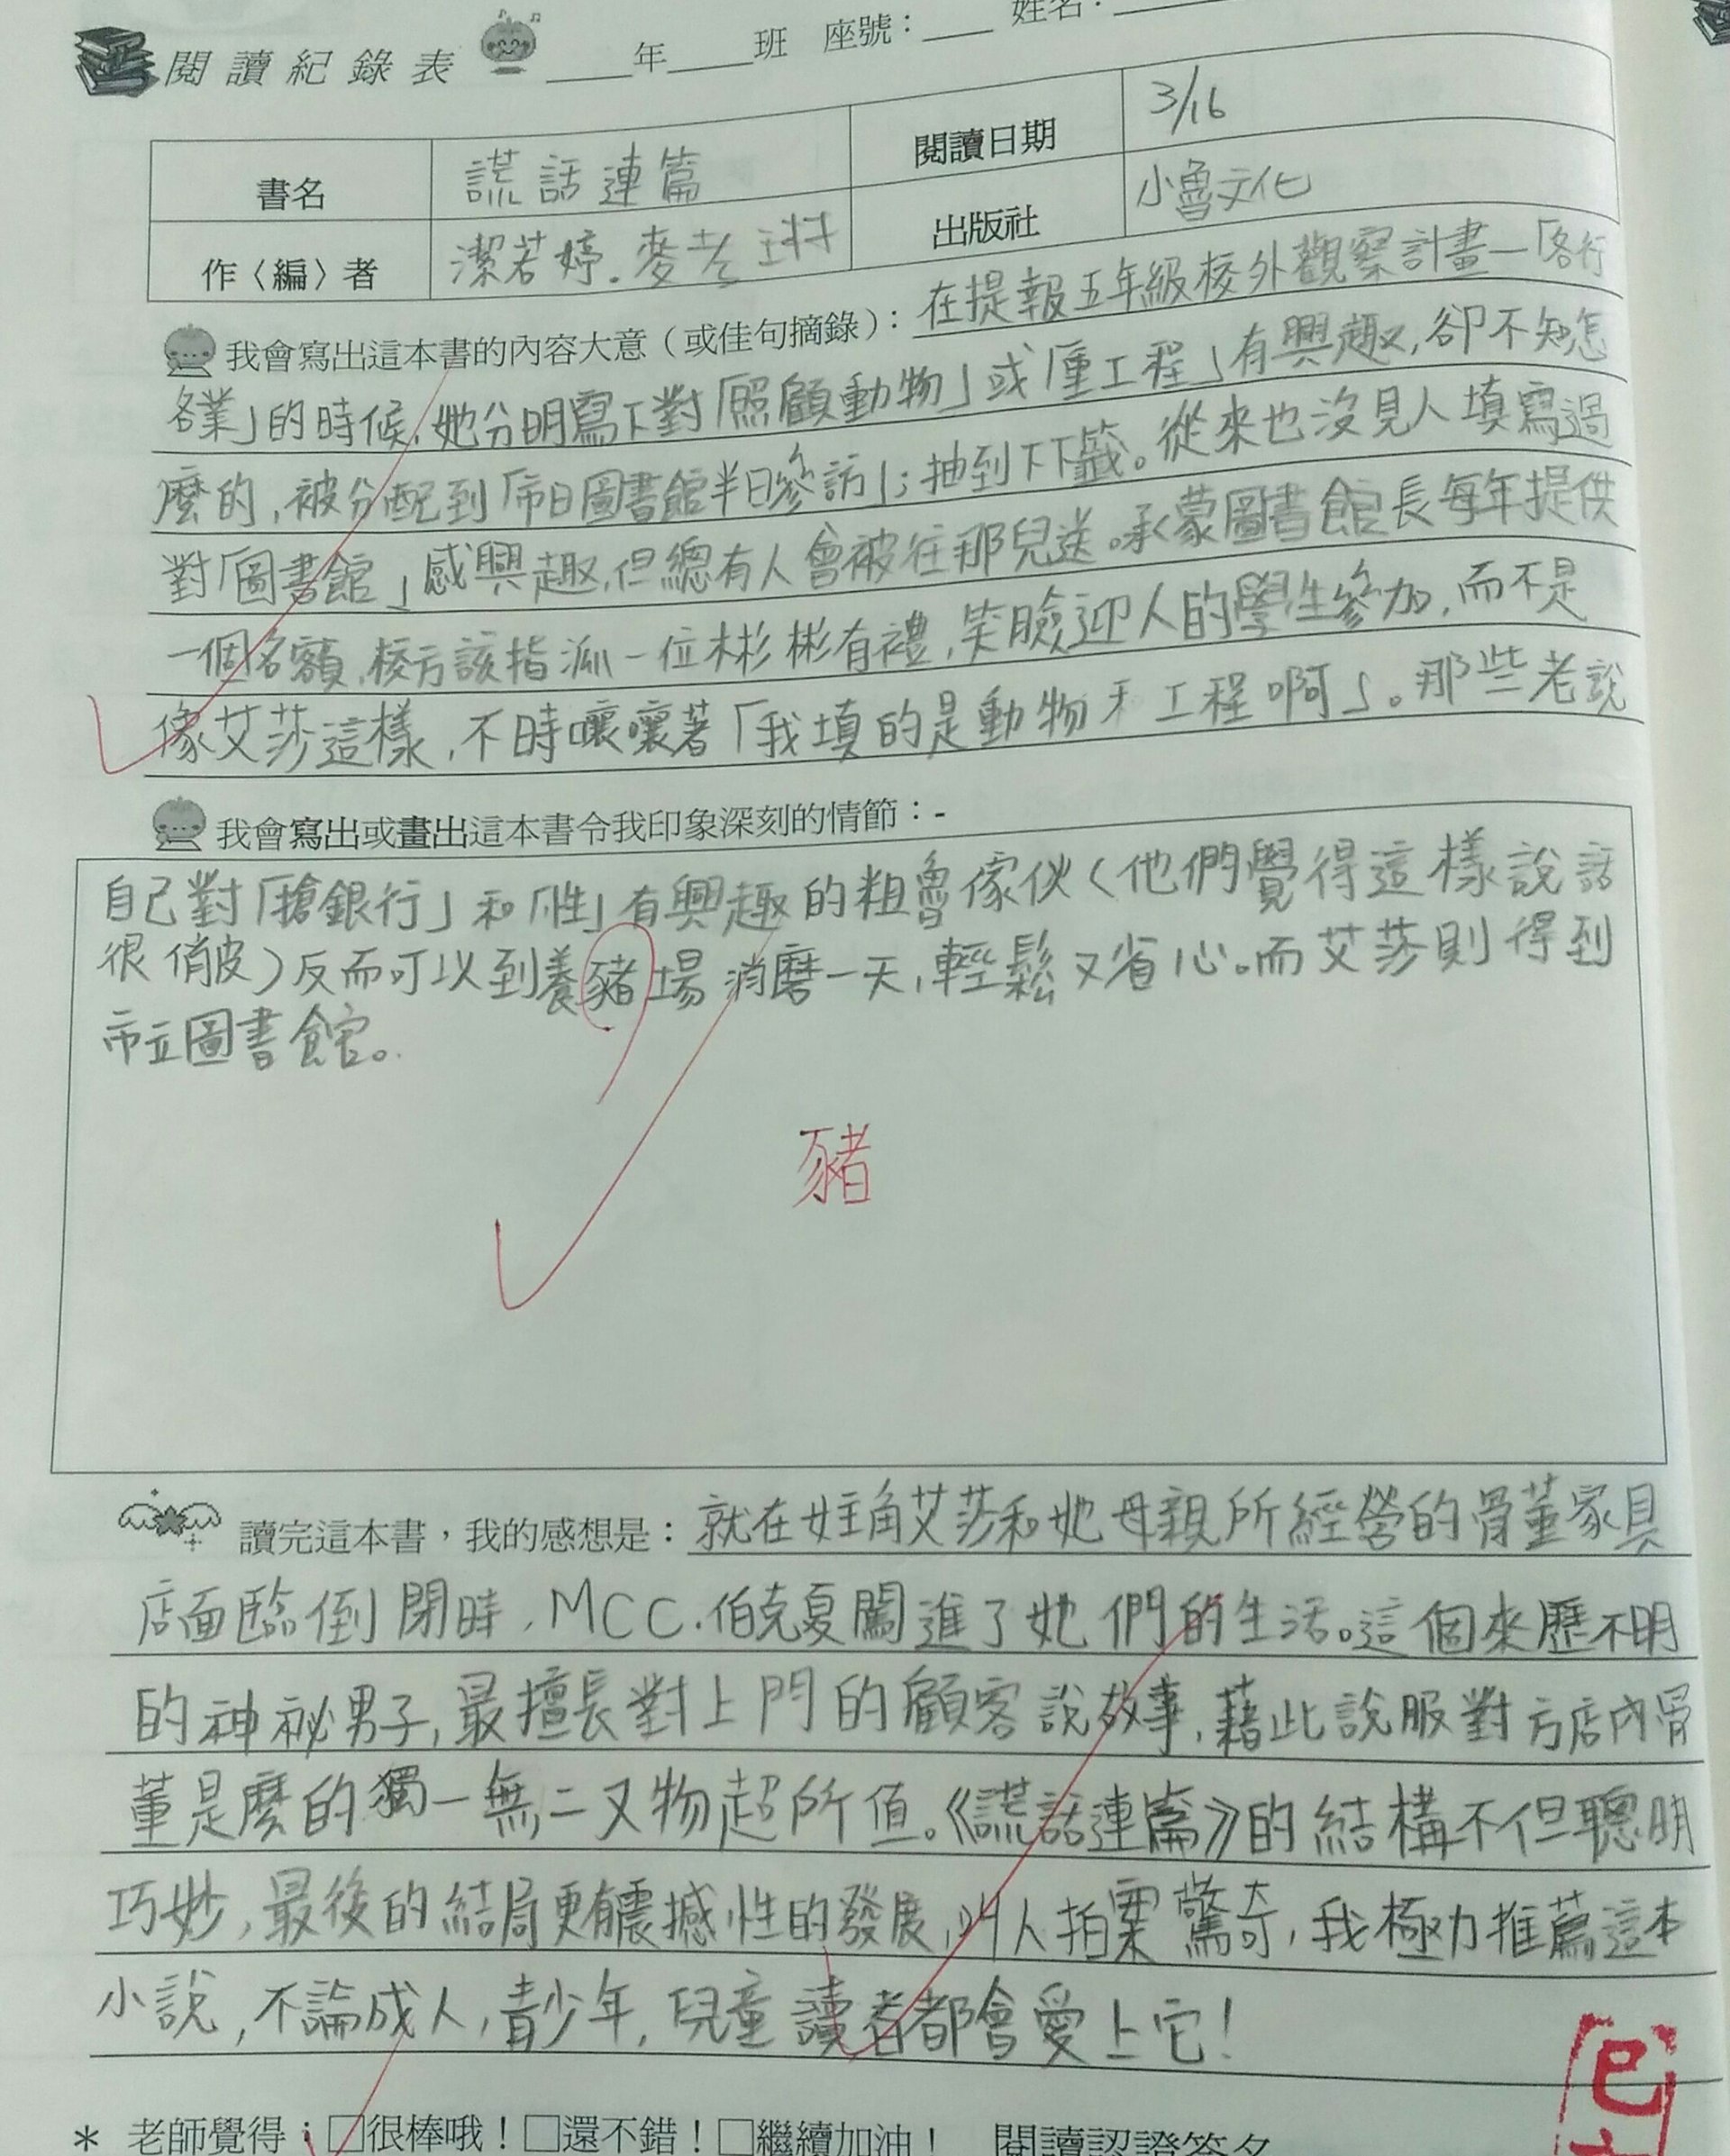 閱讀紀錄表 ____年____班 座號：____ 姓名：
書名 謊話連篇 閱讀日期 3/16
作〈編〉者 潔若婷．麥考琳 出版社 小魯文化
我會寫出這本書的內容大意（或佳句摘錄）：在提報五年級校外觀察計畫—「各行
各業」的時候，她分明寫下對「照顧動物」或「重工程」有興趣，卻不知怎
麼的，被分配到「市日圖書館半日參訪」；抽到下下籤。從來也沒見人填寫過
對「圖書館」感興趣，但總有人會被往那兒送。承蒙圖書館長每年提供
一個名額，校方該指派一位彬彬有禮，笑臉迎人的學生參加，而不是
像艾莎這樣，不時嚷嚷著「我填的是動物和工程啊」。那些老說
我會寫出或畫出這本書令我印象深刻的情節：-
自己對「搶銀行」和「性」有興趣的粗魯傢伙（他們覺得這樣說話
很俏皮）反而可以到養豬場消磨一天，輕鬆又省心。而艾莎則得到
市立圖書館。
豬
讀完這本書，我的感想是：就在女主角艾莎和她母親所經營的骨董家具
店面臨倒閉時，MCC．伯克夏闖進了她們的生活。這個來歷不明
的神祕男子，最擅長對上門的顧客說故事，藉此說服對方店內骨
董是麼的獨一無二又物超所值。《謊話連篇》的結構不但聰明
巧妙，最後的結局更有震撼性的發展，叫人拍案驚奇，我極力推薦這本
小說，不論成人，青少年，兒童讀者都會愛上它！
＊ 老師覺得：□很棒哦！□還不錯！□繼續加油！ 閱讀認證簽名